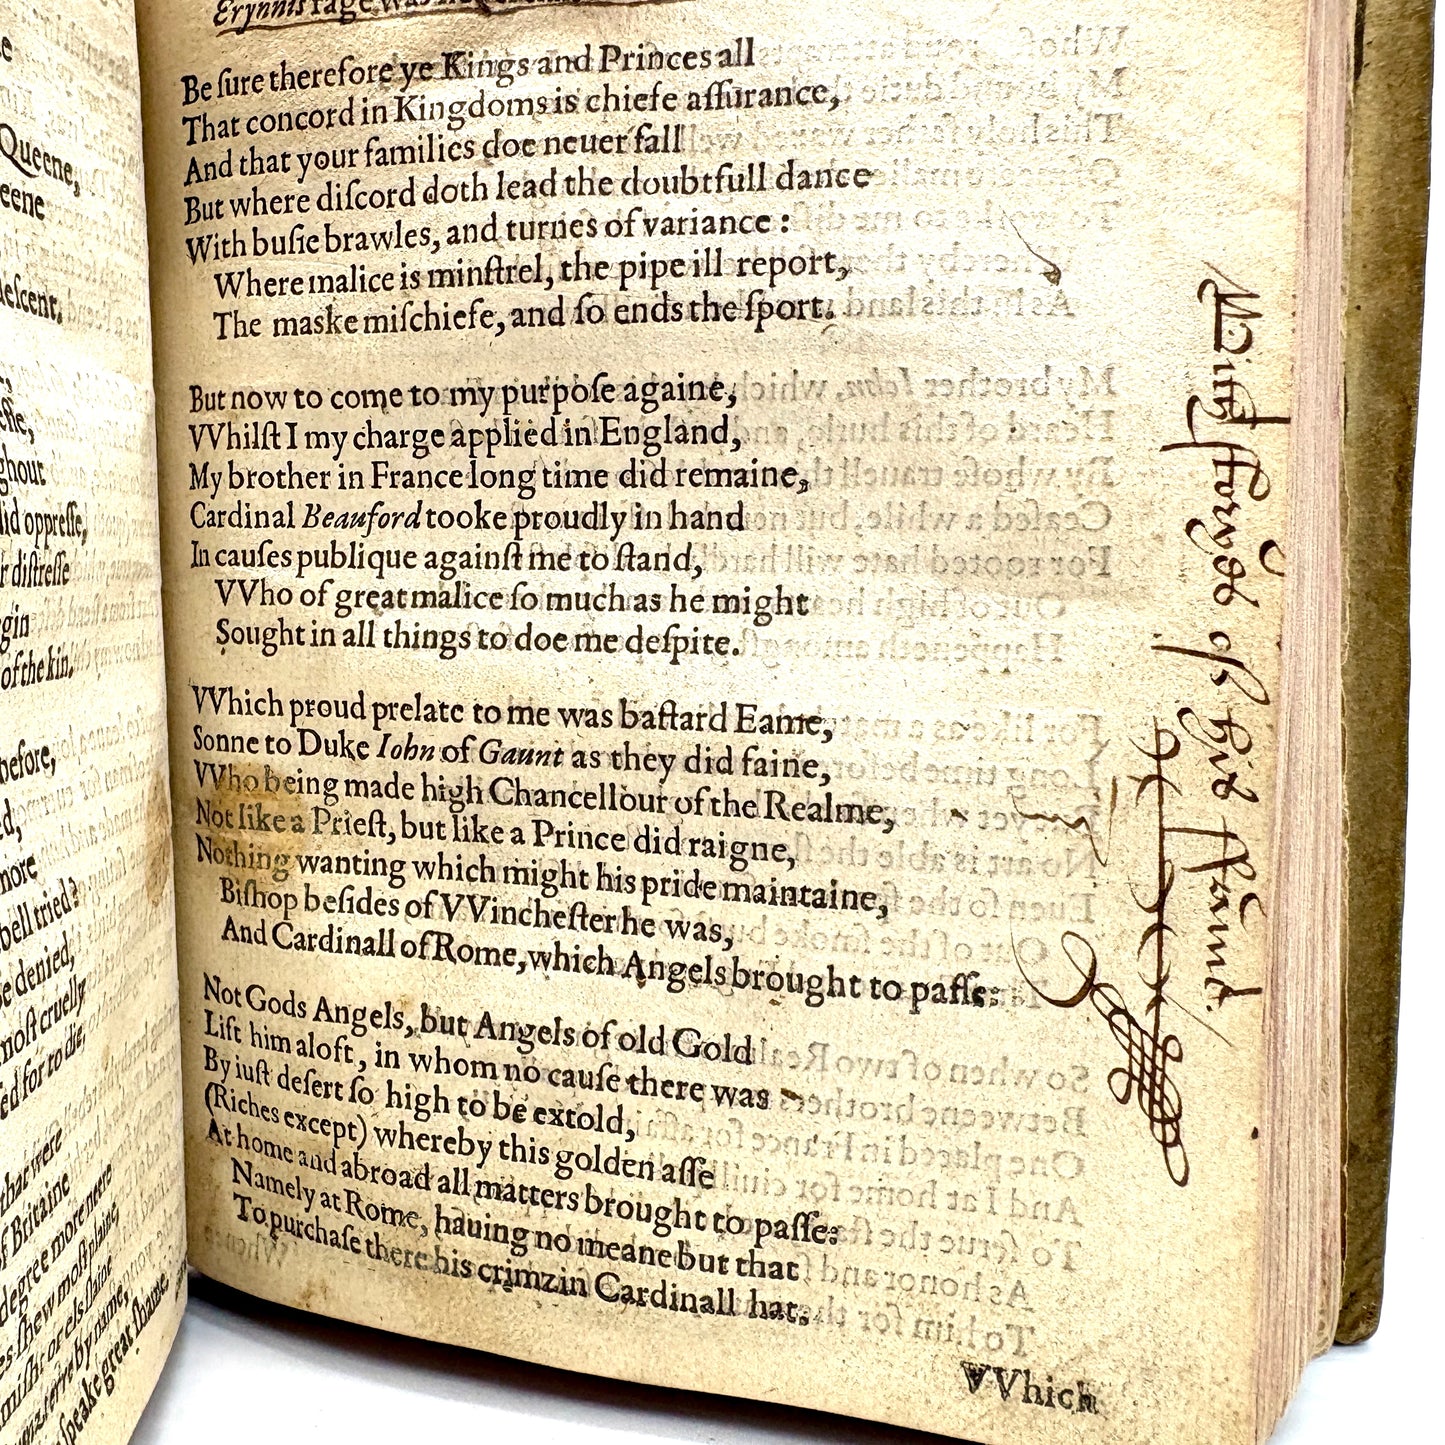 Erynnis rage was
Be ſure therefore ye Kings and Princes all
That concord in Kingdoms is chiefe aſſurance,
And that your families doe neuer fall
But where diſcord doth lead the doubtfull dance
With buſie brawles, and turnes of variance:
Where malice is minſtrel, the pipe ill report,
The maske miſchiefe, and ſo ends the ſport.
But now to come to my purpoſe againe,
VVhilſt I my charge applied in England,
My brother in France long time did remaine,
Cardinal Beauford tooke proudly in hand
In cauſes publique againſt me to ſtand,
VVho of great malice ſo much as he might
Sought in all things to doe me deſpite.
VVhich proud prelate to me was baſtard Eame,
Sonne to Duke Iohn of Gaunt as they did faine,
VVho being made high Chancellour of the Realme,
Not like a Prieſt, but like a Prince did raigne,
Nothing wanting which might his pride maintaine,
Biſhop beſides of VVincheſter he was,
And Cardinall of Rome, which Angels brought to paſſe:
Not Gods Angels, but Angels of old Gold
Liſt him aloft, in whom no cauſe there was
By iuſt deſert ſo high to be extold,
(Riches except) whereby this golden aſſe
At home and abroad all matters brought to paſſe:
Namely at Rome, hauing no meane but that
To purchaſe there his crimzin Cardinall hat.
VVhich
Queene,
eene
deſcent,
ghout
did oppreſſe,
r diſtreſſe
gin
of the kin.
before,
more
bell tried?
e denied,
moſt cruelly
ed for to die,
that were
of Britaine
degree more neere
es ſhew moſt plaine,
miſht or els ſlaine
by name,
ſpeake great ſhame.
of his